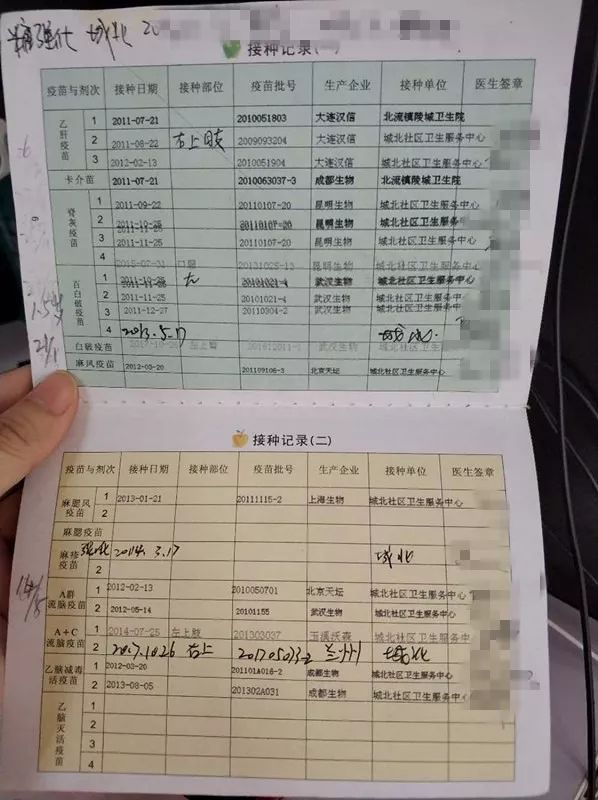 强化 城北 20
接种记录(一)
疫苗与剂次 接种日期 接种部位 疫苗批号 生产企业 接种单位 医生签章
乙肝疫苗 1 2011-07-21 2010051803 大连汉信 北流镇陵城卫生院
2 2011-08-22 右上肢 2009093204 大连汉信 城北社区卫生服务中心
3 2012-02-13 2010051904 大连汉信 城北社区卫生服务中心
卡介苗 2011-07-21 2010063037-3 成都生物 北流镇陵城卫生院
脊灰疫苗 1 2011-09-22 20110107-20 昆明生物 城北社区卫生服务中心
2 2011-10-25 20110107-20 昆明生物 城北社区卫生服务中心
3 2011-11-25 20110107-20 昆明生物 城北社区卫生服务中心
4 2015-07-31 口服 20131025-13 昆明生物 城北社区卫生服务中心
百白破疫苗 1 2011-10-25 左 20101021-4 武汉生物 城北社区卫生服务中心
2 2011-11-25 20101021-4 武汉生物 城北社区卫生服务中心
3 2011-12-27 20110304-2 武汉生物 城北社区卫生服务中心
4 2013.5.17 城北
白破疫苗 2017-10-26 左上臂 201612011-1 武汉生物 城北社区卫生服务中心
麻风疫苗 2012-03-20 201109106-3 北京天坛 城北社区卫生服务中心
1.5岁
接种记录(二)
疫苗与剂次 接种日期 接种部位 疫苗批号 生产企业 接种单位 医生签章
麻腮风疫苗 1 2013-01-21 20111115-2 上海生物 城北社区卫生服务中心
2
麻腮疫苗
麻疹疫苗 强化 2014.3.17 城北
2
A群流脑疫苗 1 2012-02-13 2010050701 北京天坛 城北社区卫生服务中心
2 2012-05-14 20101155 武汉生物 城北社区卫生服务中心
A+C流脑疫苗 1 2014-07-25 左上肢 201303037 玉溪沃森 城北社区卫生服务中心
2 2017.10.26 右上 201705023-2 兰州 城北
乙脑减毒活疫苗 1 2012-03-20 201101A016-2 成都生物 城北社区卫生服务中心
2 2013-08-05 201302A031 成都生物 城北社区卫生服务中心
乙脑灭活疫苗 1
2
3
4